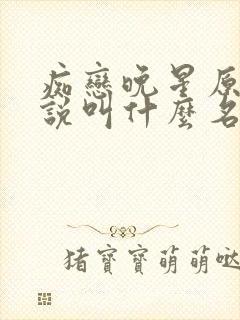 痴戀晚星原
說叫什麼名
猪寶寶萌萌噠